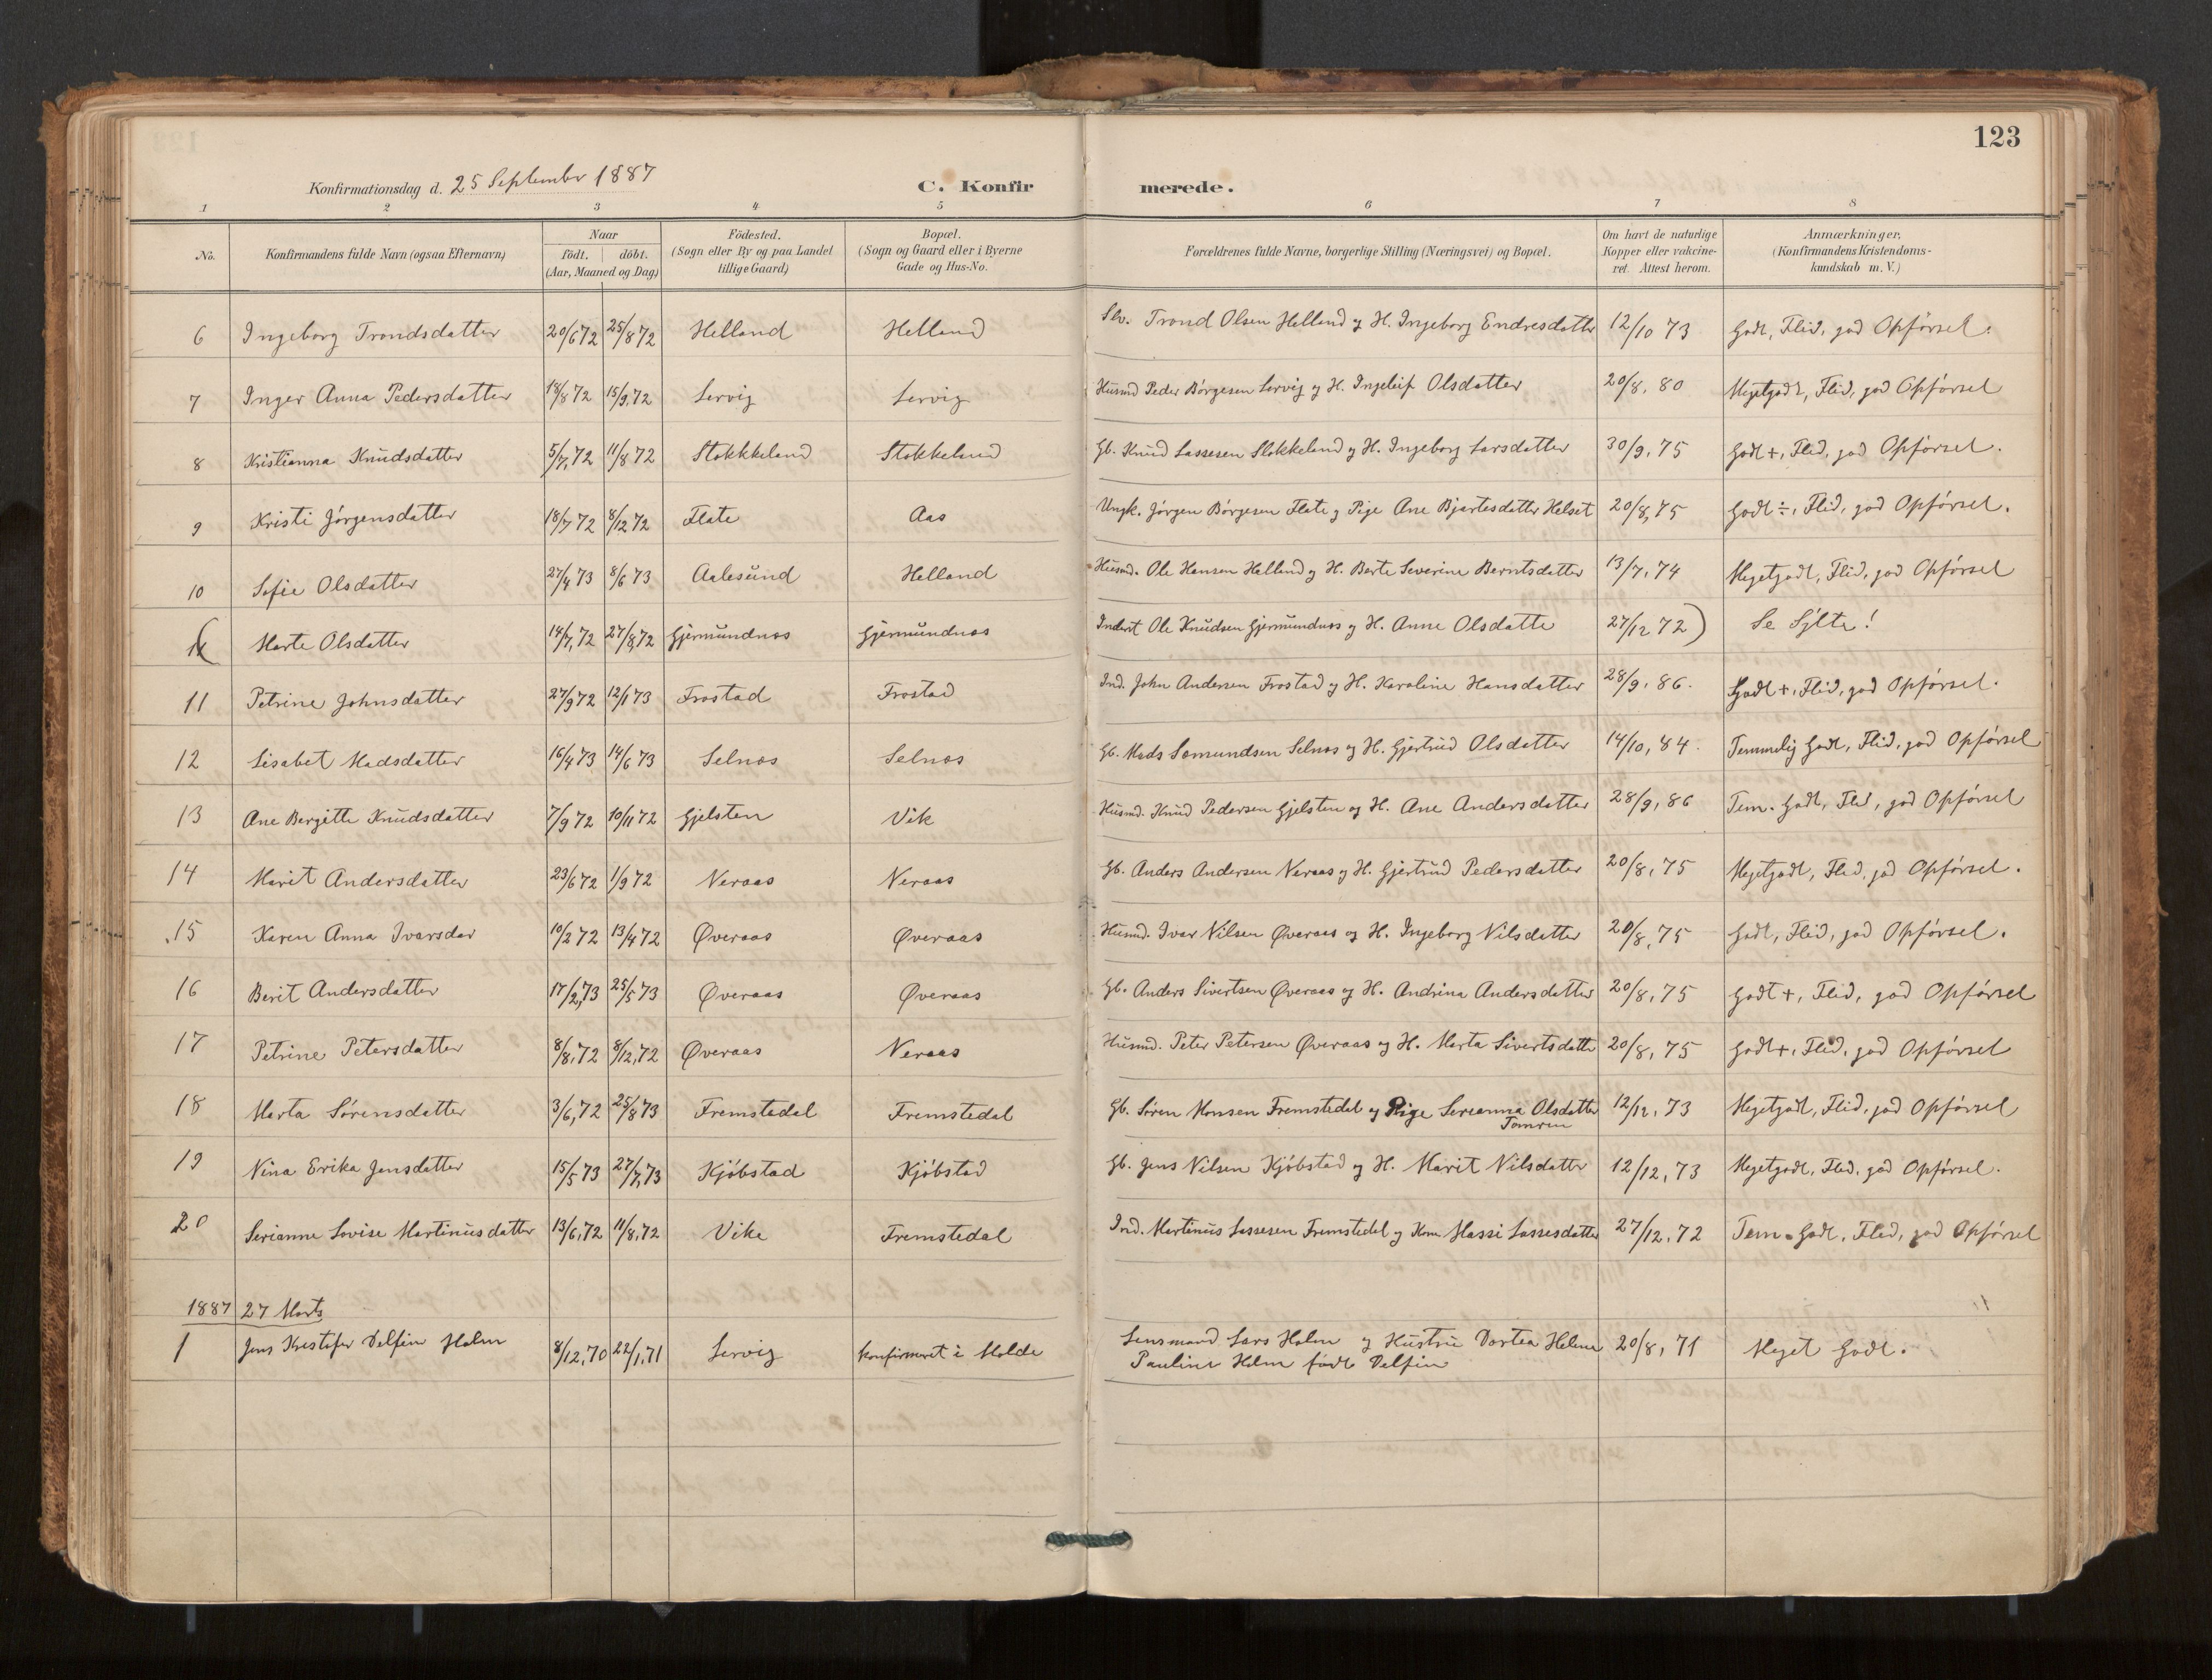 123
Konfirmationsdag d. 25 September 1887 C. Konfirmerede.
1 2 3 4 5 6 7 8
No. Konfirmandens fulde Navn (ogsaa Efternavn) Naar födt. döbt. (Aar, Maaned og Dag) Födested. (Sogn eller By og paa Landet tillige Gaard) Bopæl. (Sogn og Gaard eller i Byerne Gade og Hus-No. Forældrenes fulde Navne, borgerlige Stilling (Næringsvei) og Bopæl. Om havt de naturlige Kopper eller vakcineret. Attest herom. Anmærkninger, (Konfirmandens Kristendomskundskab m. V.)
6 Ingeborg Trondsdatter 20/6 72 25/8 72 Helland Helland Trond Olsen Helland og H. Ingeborg Endresdatter 12/10 73 Godt, Flid, god Opförsel.
7 Inger Anna Pedersdatter 18/8 72 15/9,72 Servig Servig Husmd Peder Börgesen Servig og H. Ingeleif Olsdatter 20/8, 80 Megetgodt, Flid, god Opförsel
8 Kristianna Knudsdatter 5/7,72 11/8 72 Stokkkeland Stokkeland Gb. Knud Lassesen Stokkeland og H. Ingeborg Larsdatter 30/9, 75 Godt +, Flid, god Opförsel.
9 Kristi Jörgensdatter 18/7 72 8/12 72 Flate Aas Ungk. Jörgen Börgesen Flate og Pige Ane Bjartesdatter Helset 20/8, 75 Godt ÷, Flid, god Opförsel.
10 Sofie Olsdatter 27/4 73 8/6 73 Aalesund Helland Husmd. Ole Hansen Helland og H. Berte Severine Berntsdatter 13/7, 74 Megetgodt, Flid, god Opförsel
Marte Olsdatter 14/7,72 27/8,72 Gjermundnæs Gjermundnæs Inderst Ole Knudsen Gjermundnæs og H. Anne Olsdatte 27/12 72) Se Sylte!
11 Petrine Johnsdatter 27/9 72 12/1 73 Frostad Frostad Ind. John Andersen Frostad og H. Karoline Hansdatter 28/9, 86. Godt +, Flid, god Opförsel.
12 Lisabet Madsdatter 16/4 73 14/6 73 Selnæs Selnæs Gb. Mads Semundsen Selnæs og H. Gjertrud Olsdatter 14/10, 84. Temmelig Godt, Flid, god Opförsel
13 Ane Bergitte Knudsdatter 7/9 72 10/11 72 Gjelsten Vik Husmd. Knud Pedersen Gjelsten og H. Ane Andersdatter 28/9, 86 Tem. Godt, Flid, god Opförsel
14 Marit Andersdatter 23/6 72 1/9 72 Neraas Neraas Gb. Anders Andersen Neraas og H. Gjertrud Pedersdatter 20/8, 75 Megetgodt, Flid, god Opförsel.
15 Karen Anna Ivarsdar 10/2 72 13/4 72 Øveraas Øveraas Husmd. Ivar Nilsen Øveraas og H. Ingeborg Nilsdatter 20/8, 75 Godt, Flid, god Opförsel.
16 Berit Andersdatter 17/2,73 25/5 73 Øveraas Øveraas Gb. Anders Sivertsen Øveraas og H. Andrina Andersdatter 20/8, 75 Godt +, Flid, god Opförsel
17 Petrine Petersdatter 8/8,72 8/12,72 Øveraas Neraas Husmd. Peter Petersen Øveraas og H. Marta Sivertsdatte 20/8, 75 Godt +, Flid, god Opförsel
18 Marta Sörensdatter 3/6,72 25/8 73 Fremstedal Fremstedal Gb. Sören Monsen Fremstedal og Pige Serianna Olsdatter
Tomren 12/12, 73 Megetgodt, Flid, god Opförsel
19 Nina Erika Jensdatter 15/5 73 27/7,73 Kjöbstad Kjöbstad Gb. Jens Nilsen Kjöbstad og H. Marit Nilsdatter 12/12, 73 Megetgodt, Flid, god Opförsel.
20 Serianne Lovise Martinusdatter 13/6,72 11/8,72 Vike Fremstedal Ind. Martinus Lassesen Fremstedal og Kone Massi Lassesdatter 27/12, 72 Tem. Godt, Flid, god Opförsel
1887 27 Marts
1 Jens Kristofer Delfin Holm 8/12,70 22/1,71 Servig konfirmeret i Molde Lensmand Lars Holm og Hustru Dortea Helene 20/8, 71 Meget Godt.
Pauline Holm födt Delfin